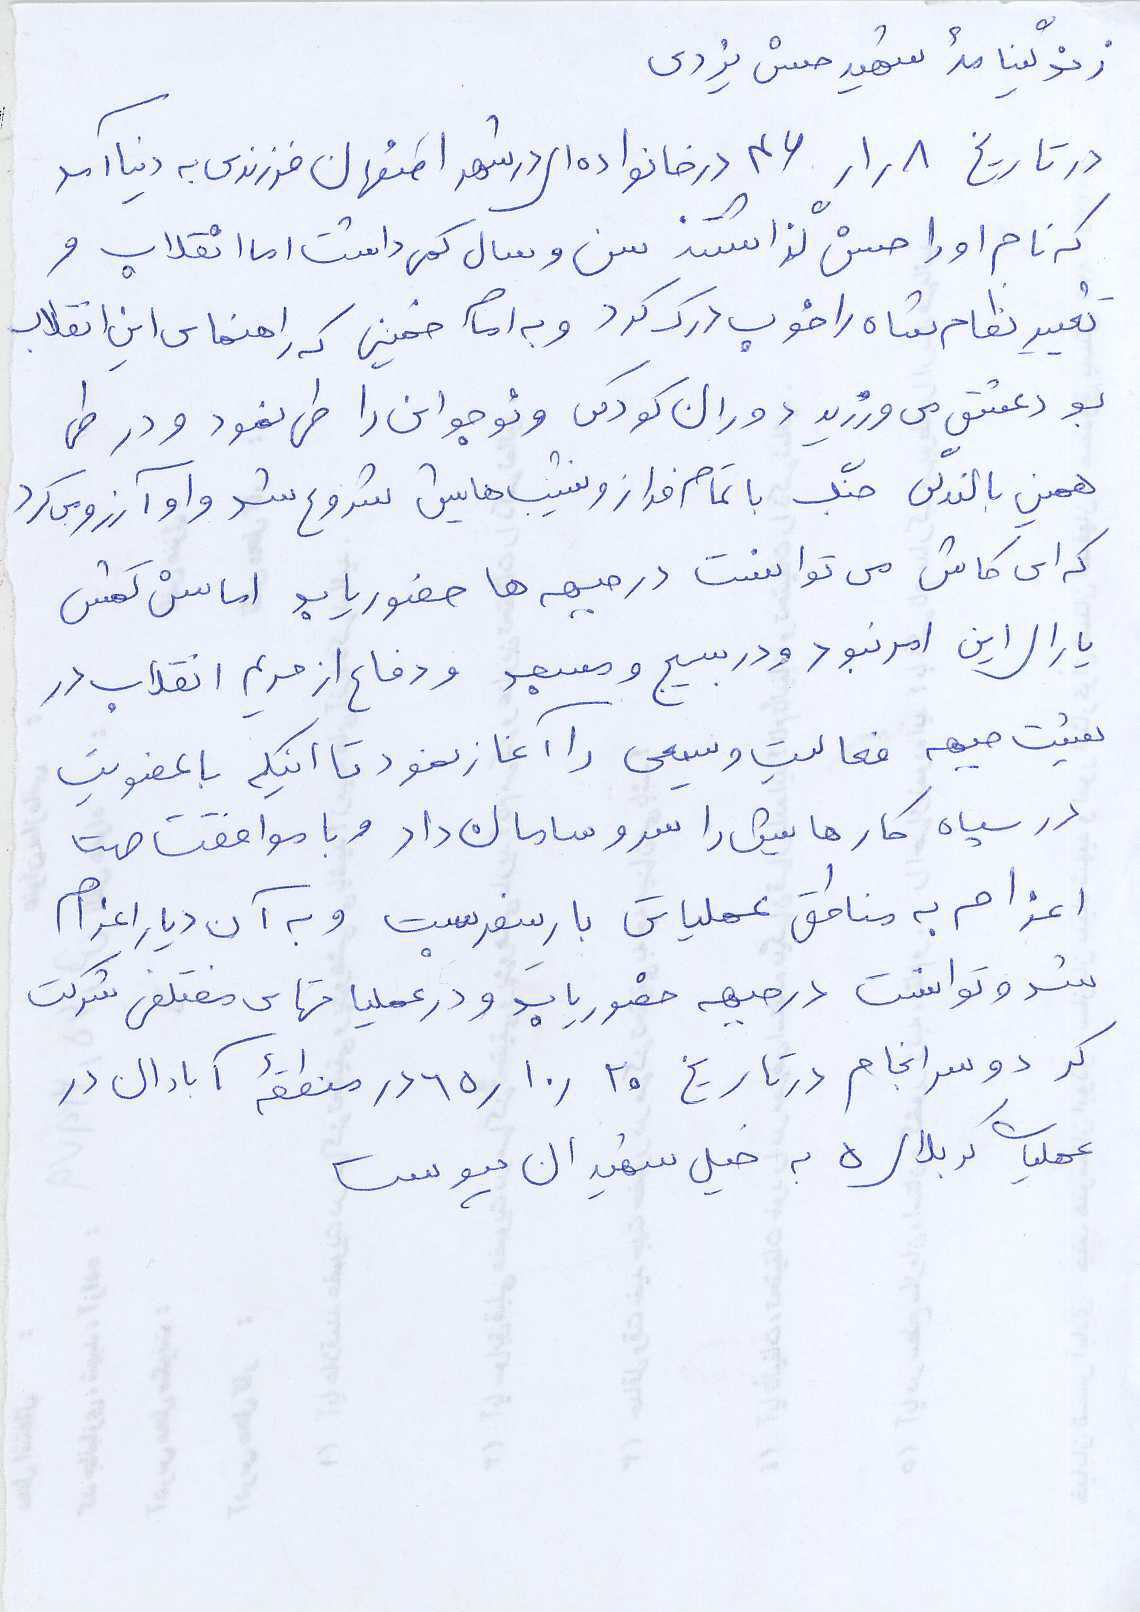 زندگینامهٔ شهید حسن یزدی
در تاریخ ۸ ر۱ر ۴۶ در خانواده ای در شهر اصفهان فرزندی به دنیا آمد
که نام او را حسن گذاشتند سن و سال کمی داشت اما انقلاب و
تغییر نظام شاه را خوب درک کرد و به امام خمینی که راهنمای این انقلاب
بود عشق می ورزید دوران کودکی و نوجوانی را طی نمود و در طی
همین بالندگی جنگ با تمام فراز و نشیب هایش شروع شد و او آرزو می کرد
که ای کاش می توانست در جبهه ها حضور یابد اما سن کمش
یارای این امر نبود و در بسیج و مسجد و دفاع از حریم انقلاب در
پشت جبهه فعالیت وسیعی را آغاز نمود تا اینکه با عضویت
در سپاه کارهایش را سر و سامان داد و با موافقت جهت
اعزام به مناطق عملیاتی بار سفر بست و به آن دیار اعزام
شد و توانست در جبهه حضور یابد و در عملیاتهای مختلفی شرکت
کرد و سرانجام در تاریخ ۲۰ ر۱۰ر ۶۵ در منطقهٔ آبادان در
عملیات کربلای ۵ به خیل شهیدان پیوست